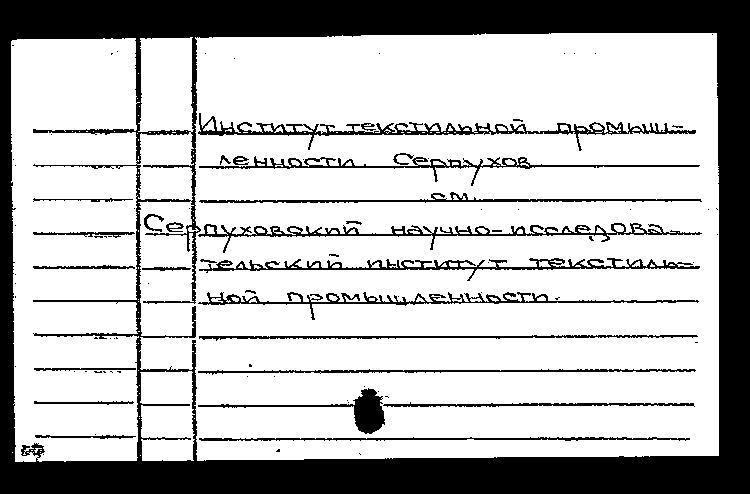 Институт текстильной промыш-
ленности. Серпухов
см.
Серпуховский научно-исследова-
тельский институт текстиль-
ной промышленности.